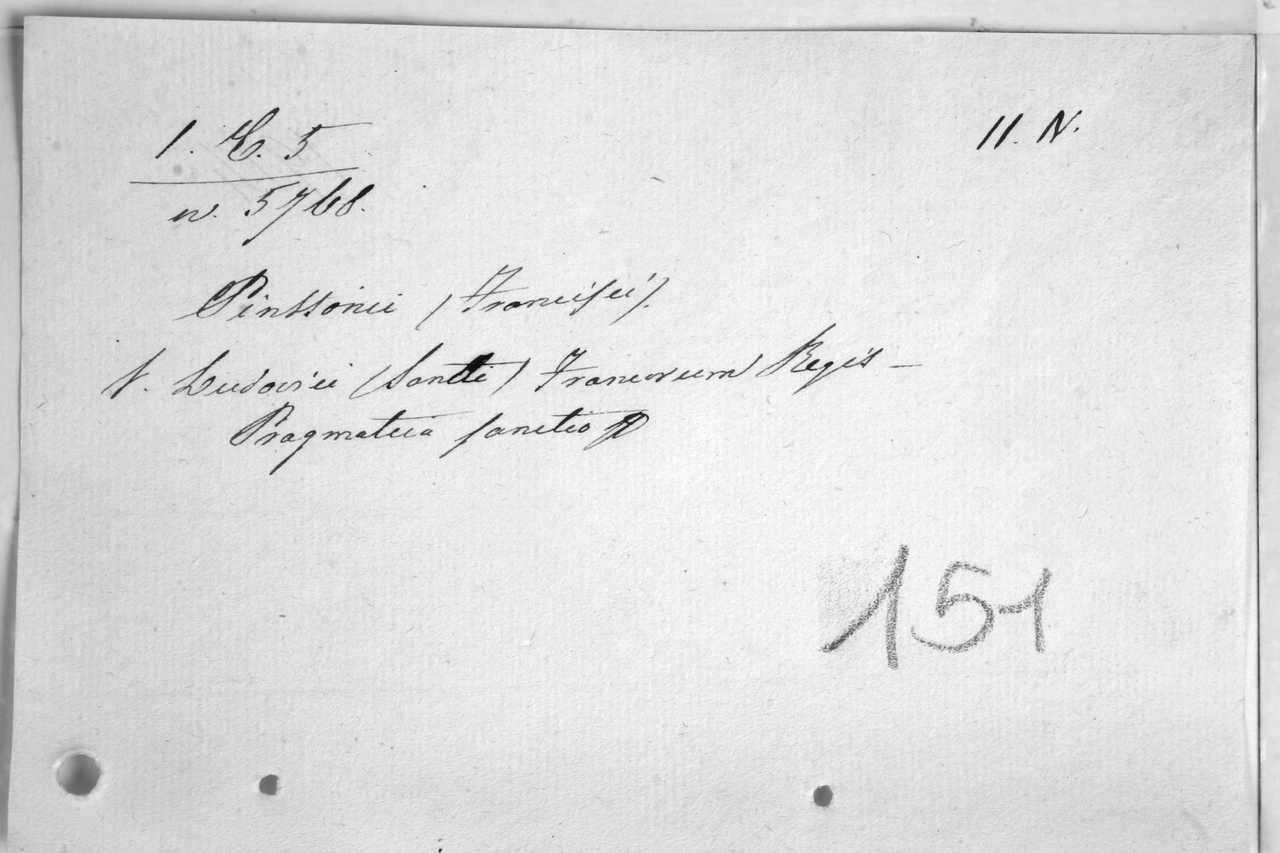 1. E. 5
11. N.
n. 5768.
Pinssonii (Francisci).
v. Ludovici (Sancti) Francorum Regis –
Pragmatica sanctio
151